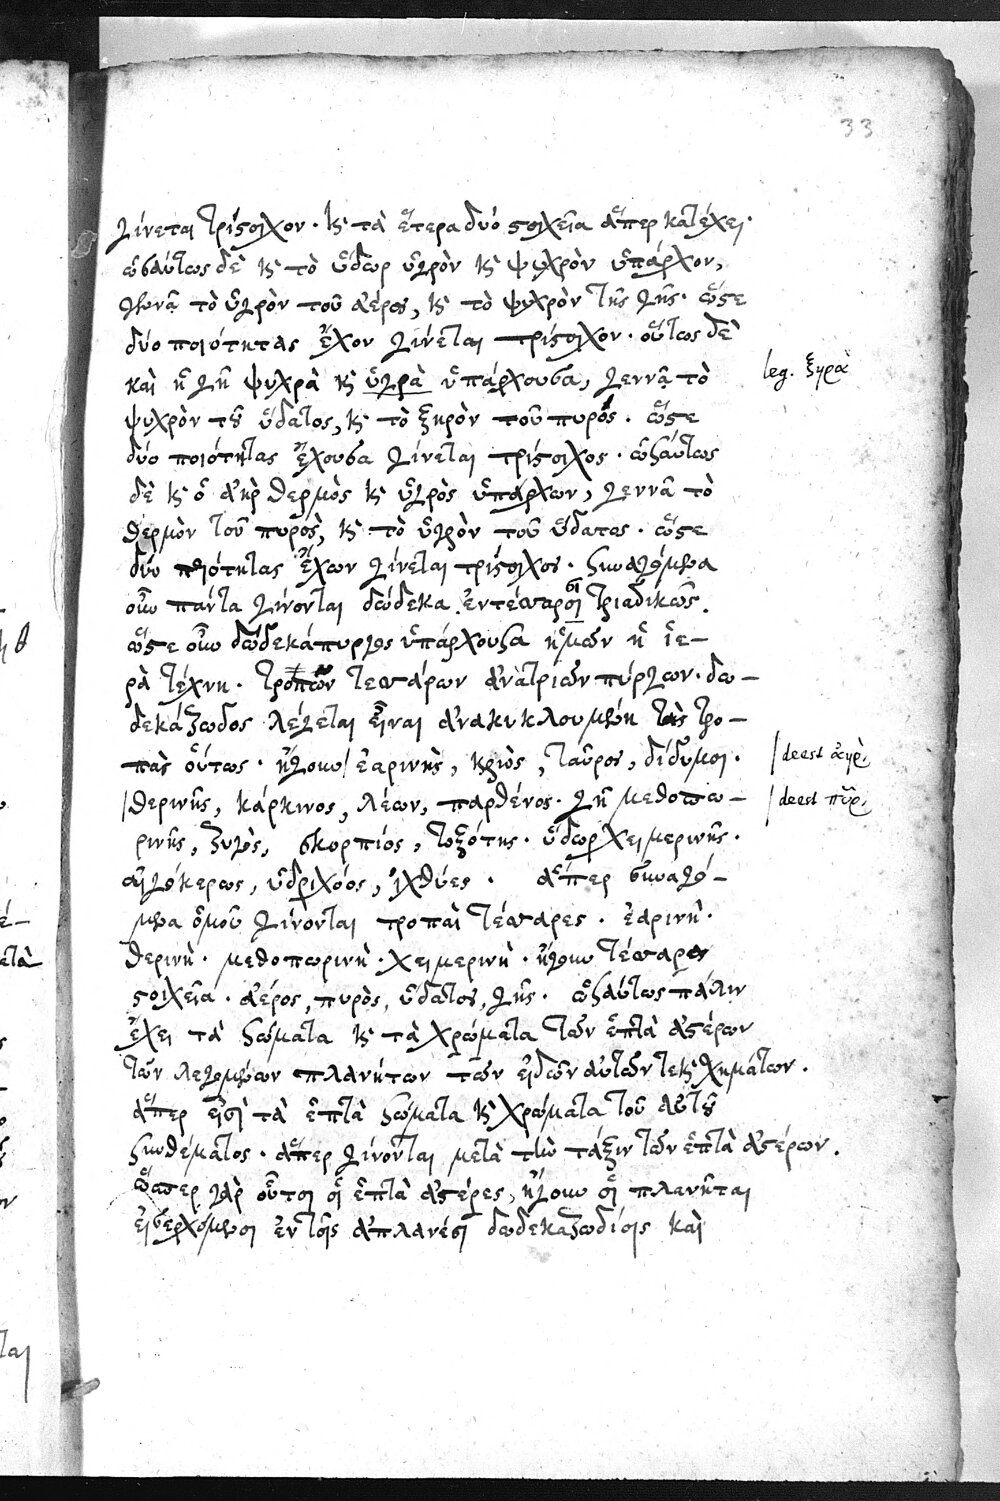 33
γίνεται τρίστοιχον · κ̀ τὰ ἕτερα δύο στοιχεῖα ἅπερ κατέχει ·
ὡσαύτως δὲ κ̀ τὸ ὕδωρ ὑγρὸν κ̀ ψυχρὸν ὑπάρχον,
γεννᾷ τὸ ὑγρὸν τοῦ ἀέρος, κ̀ τὸ ψυχρὸν τῆς γῆς · ὥστε
δύο ποιότητας ἔχον γίνεται τρίστοιχον · οὕτως δὲ
καὶ ἡ γῆ ψυχρὰ κ̀ ὑγρὰ ὑπάρχουσα, γεννᾷ τὸ
leg. ξηρὰ
ψυχρὸν τοῦ ὕδατος, κ̀ τὸ ξηρὸν τοῦ πυρός · ὥστε
δύο ποιότητας ἔχουσα γίνεται τρίστοιχος · ὡσαύτως
δὲ κ̀ ὁ ἀὴρ θερμὸς κ̀ ὑγρὸς ὑπάρχων, γεννᾷ τὸ
θερμὸν τοῦ πυρὸς, κ̀ τὸ ὑγρὸν τοῦ ὕδατος · ὥστε
δύο ποιότητας ἔχων γίνεται τρίστοιχος · συναγόμενα
οὖν πάντα γίνονται δώδεκα ἐν τέσσαροι τριαδικῶς.
ὥστε οὖν δωδεκάπυργος ὑπάρχουσα ἡμῶν ἡ ἱε-
ρὰ τέχνη · τροπῶν τεσσάρων ἀνὰ τριῶν πύργων · δω-
δεκάζωδος λέγεται εἶναι ἀνακυκλουμένη τὰς τρο-
πὰς οὕτως · ἤγουν / ἐαρινῆς, κριὸς, ταῦρος, δίδυμοι ·
/ deest ἀὴρ.
/ θερινῆς, κάρκινος, λέων, παρθένος · γῆ μεθοπω-
/ deest πῦρ.
ρινῆς, ζυγὸς, σκορπίος, τοξότης · ὕδωρ χειμερινῆς ·
αἰγόκερως, ὑδριχόος, ἰχθύες · ἅπερ συναγό-
μενα ὁμοῦ γίνονται τροπαὶ τέσσαρες · ἐαρινὴ ·
θερινὴ · μεθοπωρινὴ · χειμερινὴ · ἤγουν τέσσαρες
στοιχεῖα · ἀέρος, πυρὸς, ὕδατος, γῆς · ὡσαύτως πάλιν
ἔχει τὰ σώματα κ̀ τὰ χρώματα τῶν ἑπτὰ ἀστέρων
τῶν λεγομένων πλανήτων τῶν εἰδῶν αὐτῶν τε κ̀ χημάτων.
ἅπερ εἰσὶ τὰ ἑπτὰ σώματα κ̀ χρώματα τοῦ αὐτοῦ
συνθέματος · ἅπερ γίνονται μετὰ τὴν τάξιν τῶν ἑπτὰ ἀστέρων.
ὥσπερ γὰρ οὗτοι οἱ ἑπτὰ ἀστέρες, ἤγουν οἱ πλανῆται
εἰσερχόμενοι ἐν τοῖς ἀπλανέσι δωδεκαζωδίοις καὶ